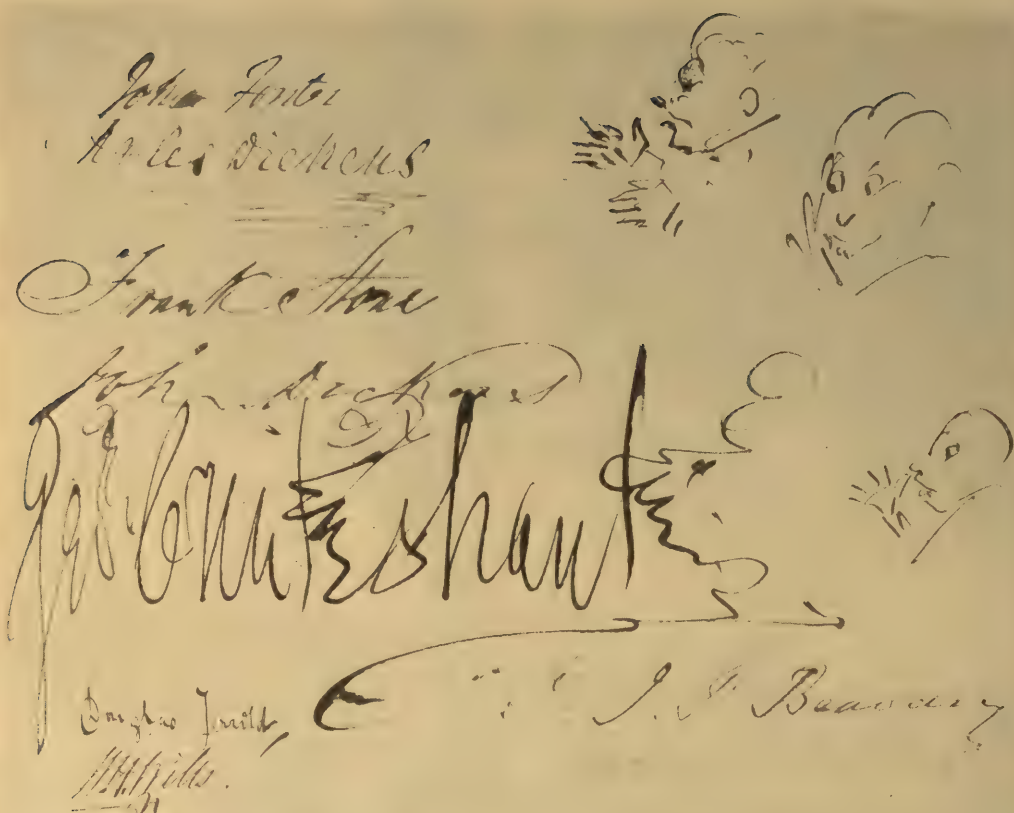 John Forster
Charles Dickens
Frank Stone
John Dickens
George Cruikshank
Douglas Jerrold
W.H. Wills.
J.